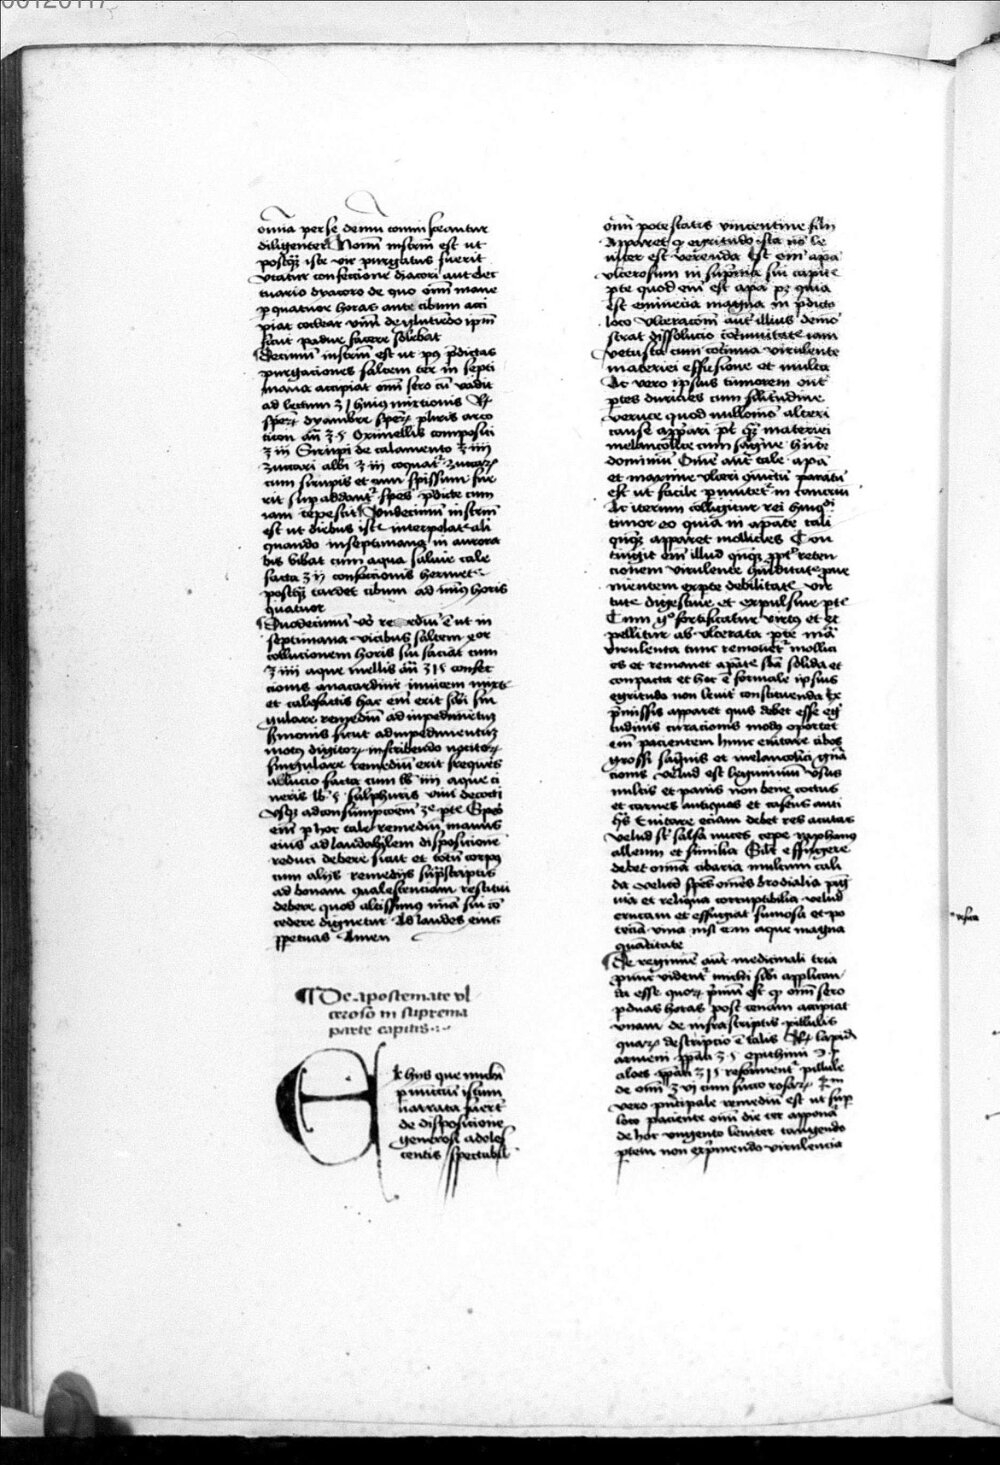 00120117
omnia per se demum commisceantur
diligenter Nonum instrm est ut
postq̄ iste vir purgatus fuerit
utatur confectione diacori aut elec
tuario dyacoro de quo omī mane
p quatuor horas ante cibum acci
piat coclear
sicut padue facere solebat
Decimū instrm est ut pꝰ p̄dictas
purgaciones saltem ter in septi
mana accipiat omī sero cū vadit
ad lectum ʒ j huiꝰ mixtionis ℞
sper dyambre sper pliris arco
ticon an̄ ʒ s Oximellis compositi
ʒ iii Sirupi de calamento ℥ iiii
zuccari albi ℥ iii coquatr zuccarꝝ
cum sirupis et cum spissum fue
rit sup addantr spēs p̄dicte cum
iam tepescit Undecimū instrm
est ut diebus istis interpolatis ali
quando in septimana in aurora
bis bibat cum aqua salvie tale
facta ʒ ii confectionis hermetis
postq̄ tardet cibum ad minꝰ horis
quatuor
Duodecimū vo remediū ē ut in
septimana vicibus saltem
collucionem horis sui faciat cum
℥ iiii aque mellis an̄ ʒ i s confec
cionis anacardine invicem mixtis
et calefactis hac em̄ erit sibi sin
gulare remediū ad impedimentū
sermonis sicut ad impedimentū
motꝰ digitorꝝ in scribendo
singulare remediū erit frequēs
ablucio facta cum lb iiii aque ci
neris lb s sulphuris vivi decocti
usq ad consumpcoem ʒe pte Spero
em̄ p hoc tale remediū manus
eius ad laudabilem disposicionē
reduci debere sicut et totū corpꝰ
cum alijs remedijs sup̄scriptis
ad bonam qualescenciam restitui
debere quod altissimꝰ mīa sui co
cedere dignetur Ad laudes eius
ppetuas Amen
De apostemate ul
ceroso in suprema
parte capitis
Ex hijs que michi
p nuncium istum
narrata fuert
de disposicione
generosi adoles
centis spectabil
omī potestatis vincentine filii
Apparet q̄ egritudo ista nō le
niter est verenda Est em̄ apa
ulcerosum in suprema sui capite
pte quod em̄ est apa pꝫ quia
est eminēcia magna in p̄dicto
loco Ulceracōm aut illius demō
strat dissolucio cōtinuitatis iam
vetusta cum cōtinua virulente
materiei effusione et multa
Ac vero ipsius tumorem
ptes duricies cum silitudine
veruce quod nullomō alteri
cause appari pt q̄ materiei
melancolice cum sāguine hūte
dominiū Ome aut tale apa
et maxime ulceri cōiunctū paratū
est ut facile p mutetr in cancrū
Ac iterum colligitur rei huiꝰodi
timor eo quia in apate tali
quiq apparet mollicies Con
tingit em̄ illud quiq ppt reten
cionem virulente humiditatis pve
nientem ex pte debilitatis vir
tutis digestive et expulsive ptis
Cum gͦ fortificatur virtꝰ et ex
pellitur ab ulcerata pte mā
virulenta tunc removetr mollici
es et remanet apate sba solida et
compacta et hoc ē formale ipsius
egritudo non leviter constituenda Ex
p̄missis apparet quis debet esse eg
tudinis curacionis modꝰ oportet
em̄ pacientem hunc evitare cibos
grossi sāguinis et melancolici gna
cionis Velud est leguminum usus
miliis et panis non bene coctus
et carnes antiquas et caseus anti
qꝰ Evitare eciam debet res acutas
velud st salsa nuces cepe raphanꝰ
alleum et similia Silr effugere
debet omīa cibaria multum cali
da velud spēs omēs brodialia pīg
via et reliqua corruptibilia velud
erucam et effugiat fumosa et po
tencia vina nisi cum aque magna
quātitate
De regimīe aut medicinali tria
p̄nunc videntr michi sibi applican
da esse quorꝝ p̄mū est q̄ omī sero
p duas horas post cenam accipiat
unam de infrascriptis pillulis
quarꝝ descriptio ē talis ℞ lapidis
armeni ppati ʒ s epithimi
aloes ppati ʒ i s reformentr pillule
de omī ʒ vi cum succo rosarꝝ
vero p̄ncipale remediū est ut sup
loco paciente omī die ter apponat
de hoc ungento leniter tangendo
ptem non exp̄mendo virulencia